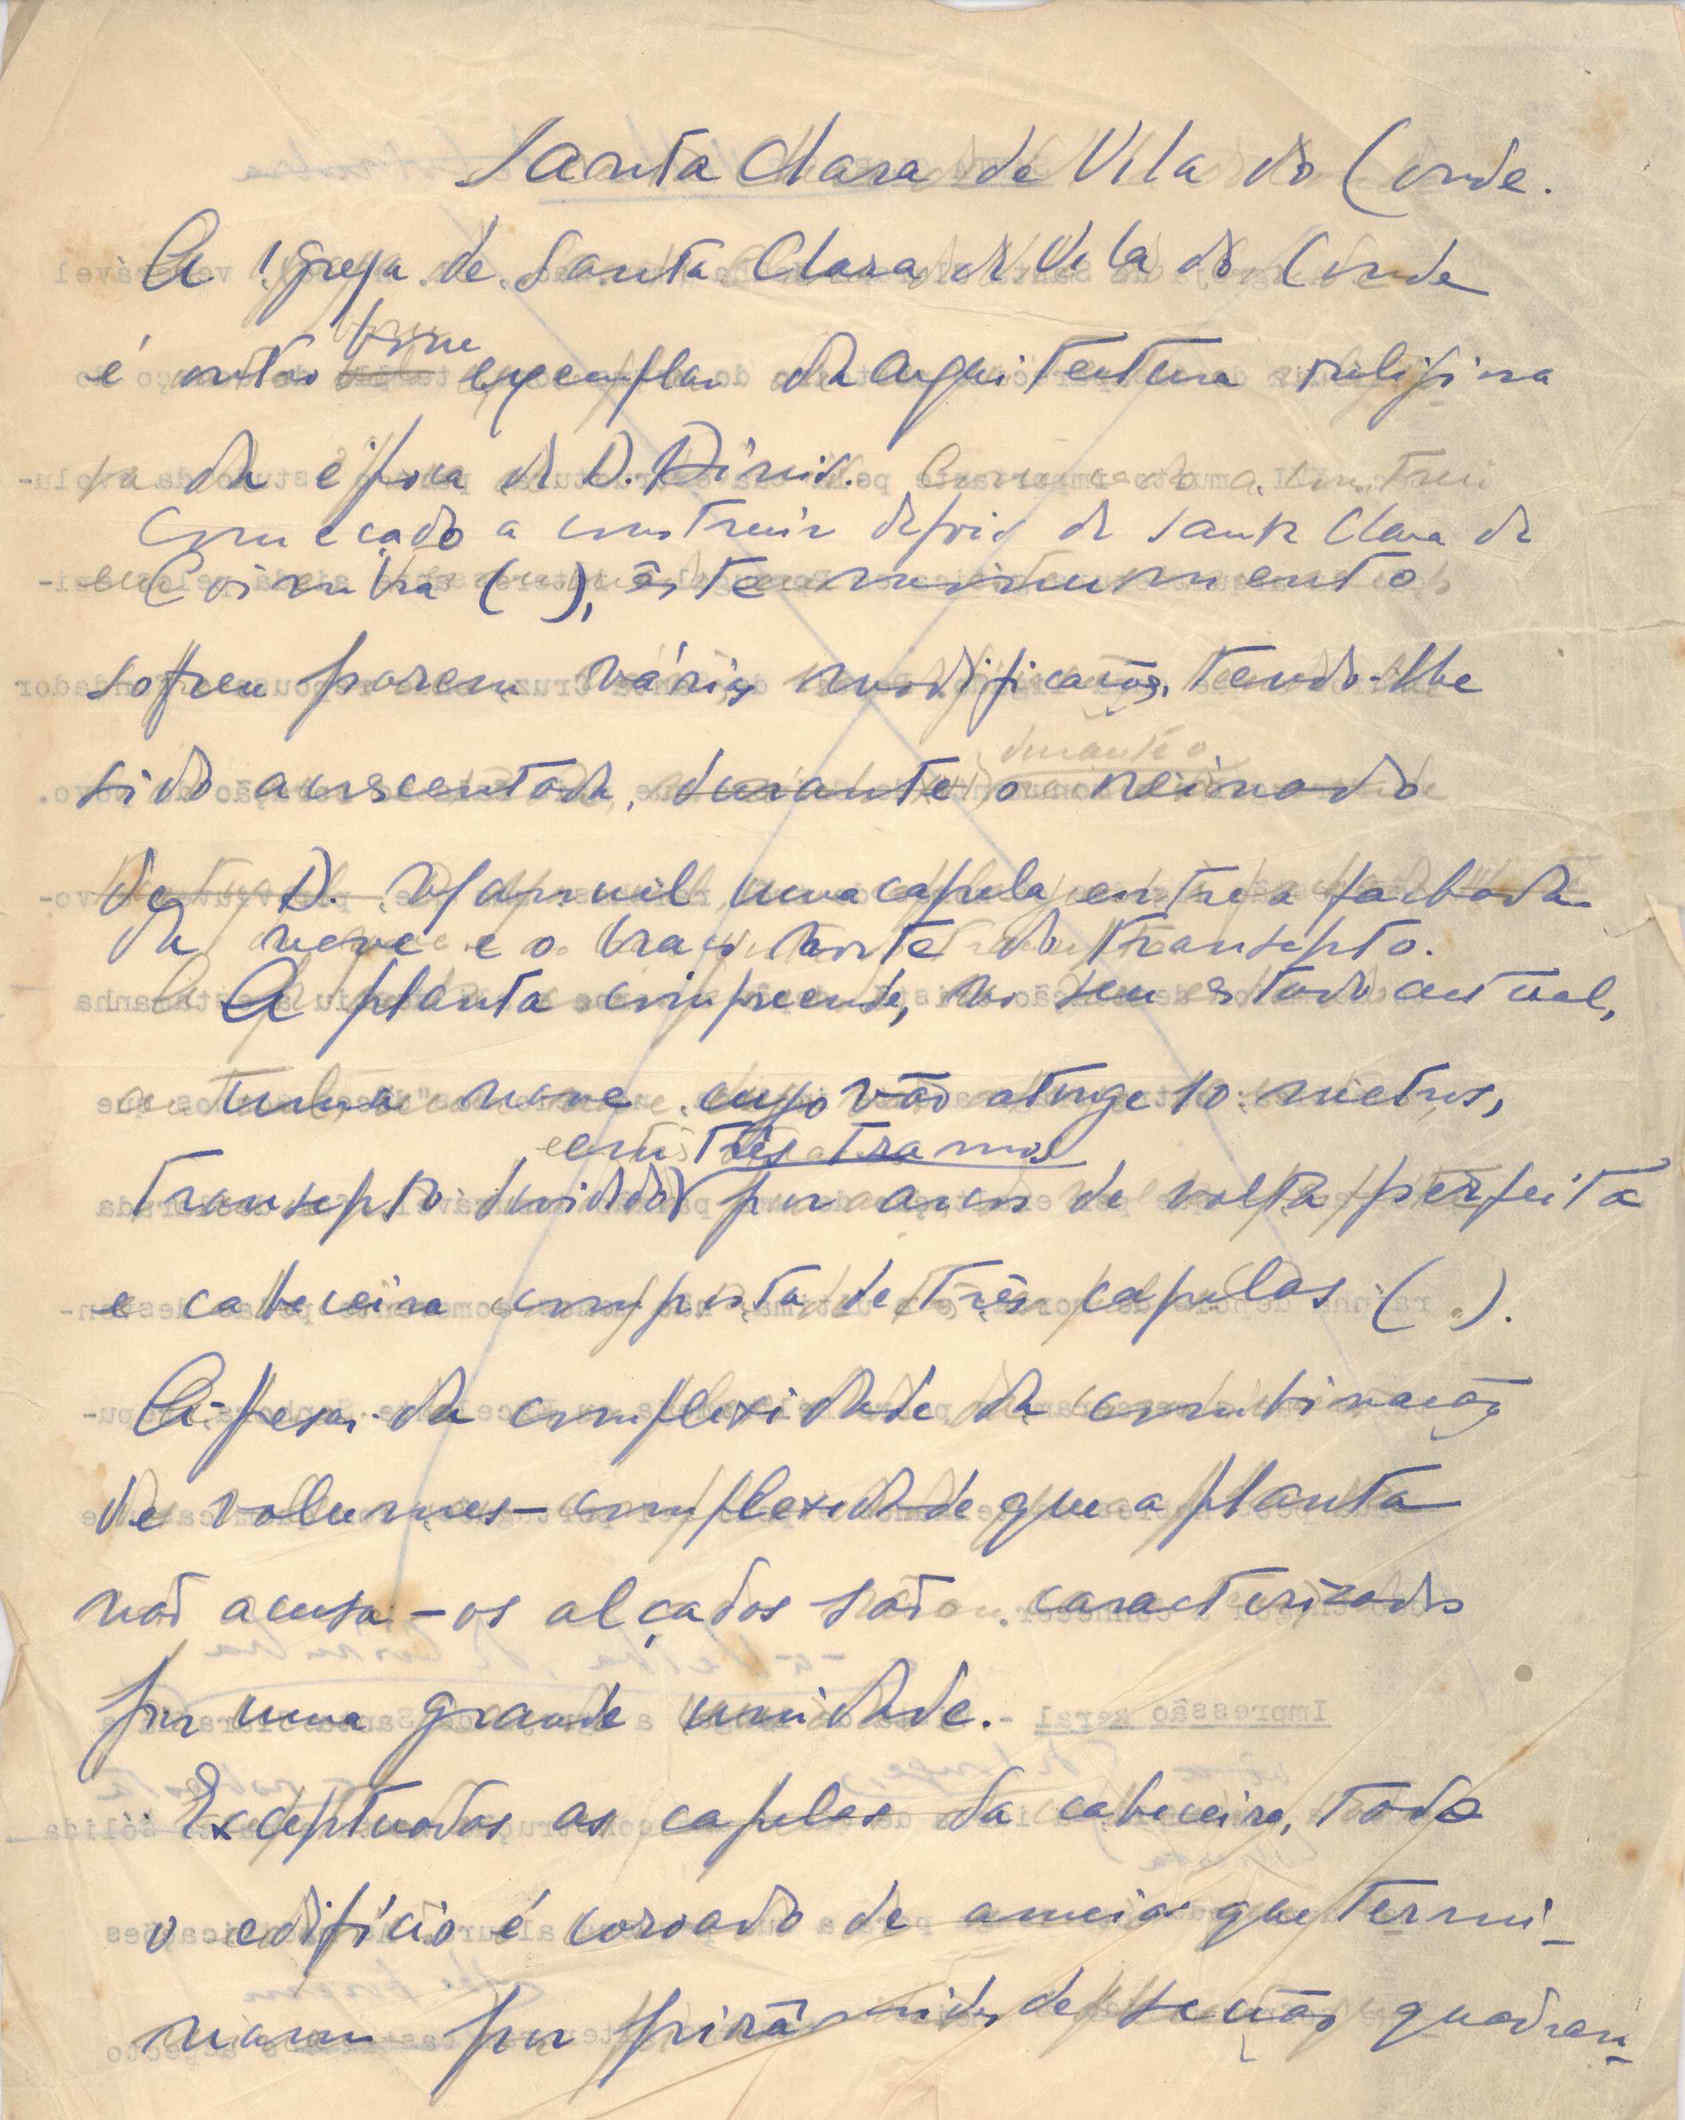 Santa Clara de Vila do Conde.
A Igreja de Santa Clara de Vila do Conde
é outro bom exemplar da arquitectura religiosa
da época de D. Dinis.
Começado a construir depois de Santa Clara de
Coimbra ( ), êste monumento
sofreu porem várias modificações, tendo-lhe
sido acrescentada, durante o reinado
de D. Manuel uma capela entre a fachada
da nave e o braço norte do transepto.
A planta compreende, no seu estado actual,
uma nave cujo vão atinge 10 metros,
em três tramos
transepto dividido por arcos de volta perfeita
e cabeceira composta de três capelas ( ).
Apesar da complexidade da combinação
de volumes - complexidade que a planta
não acusa - os alçados são caracterizados
por uma grande unidade.
Exceptuadas as capelas da cabeceira, todo
o edifício é coroado de ameias que termi-
nam por pirâmides de secção quadran-